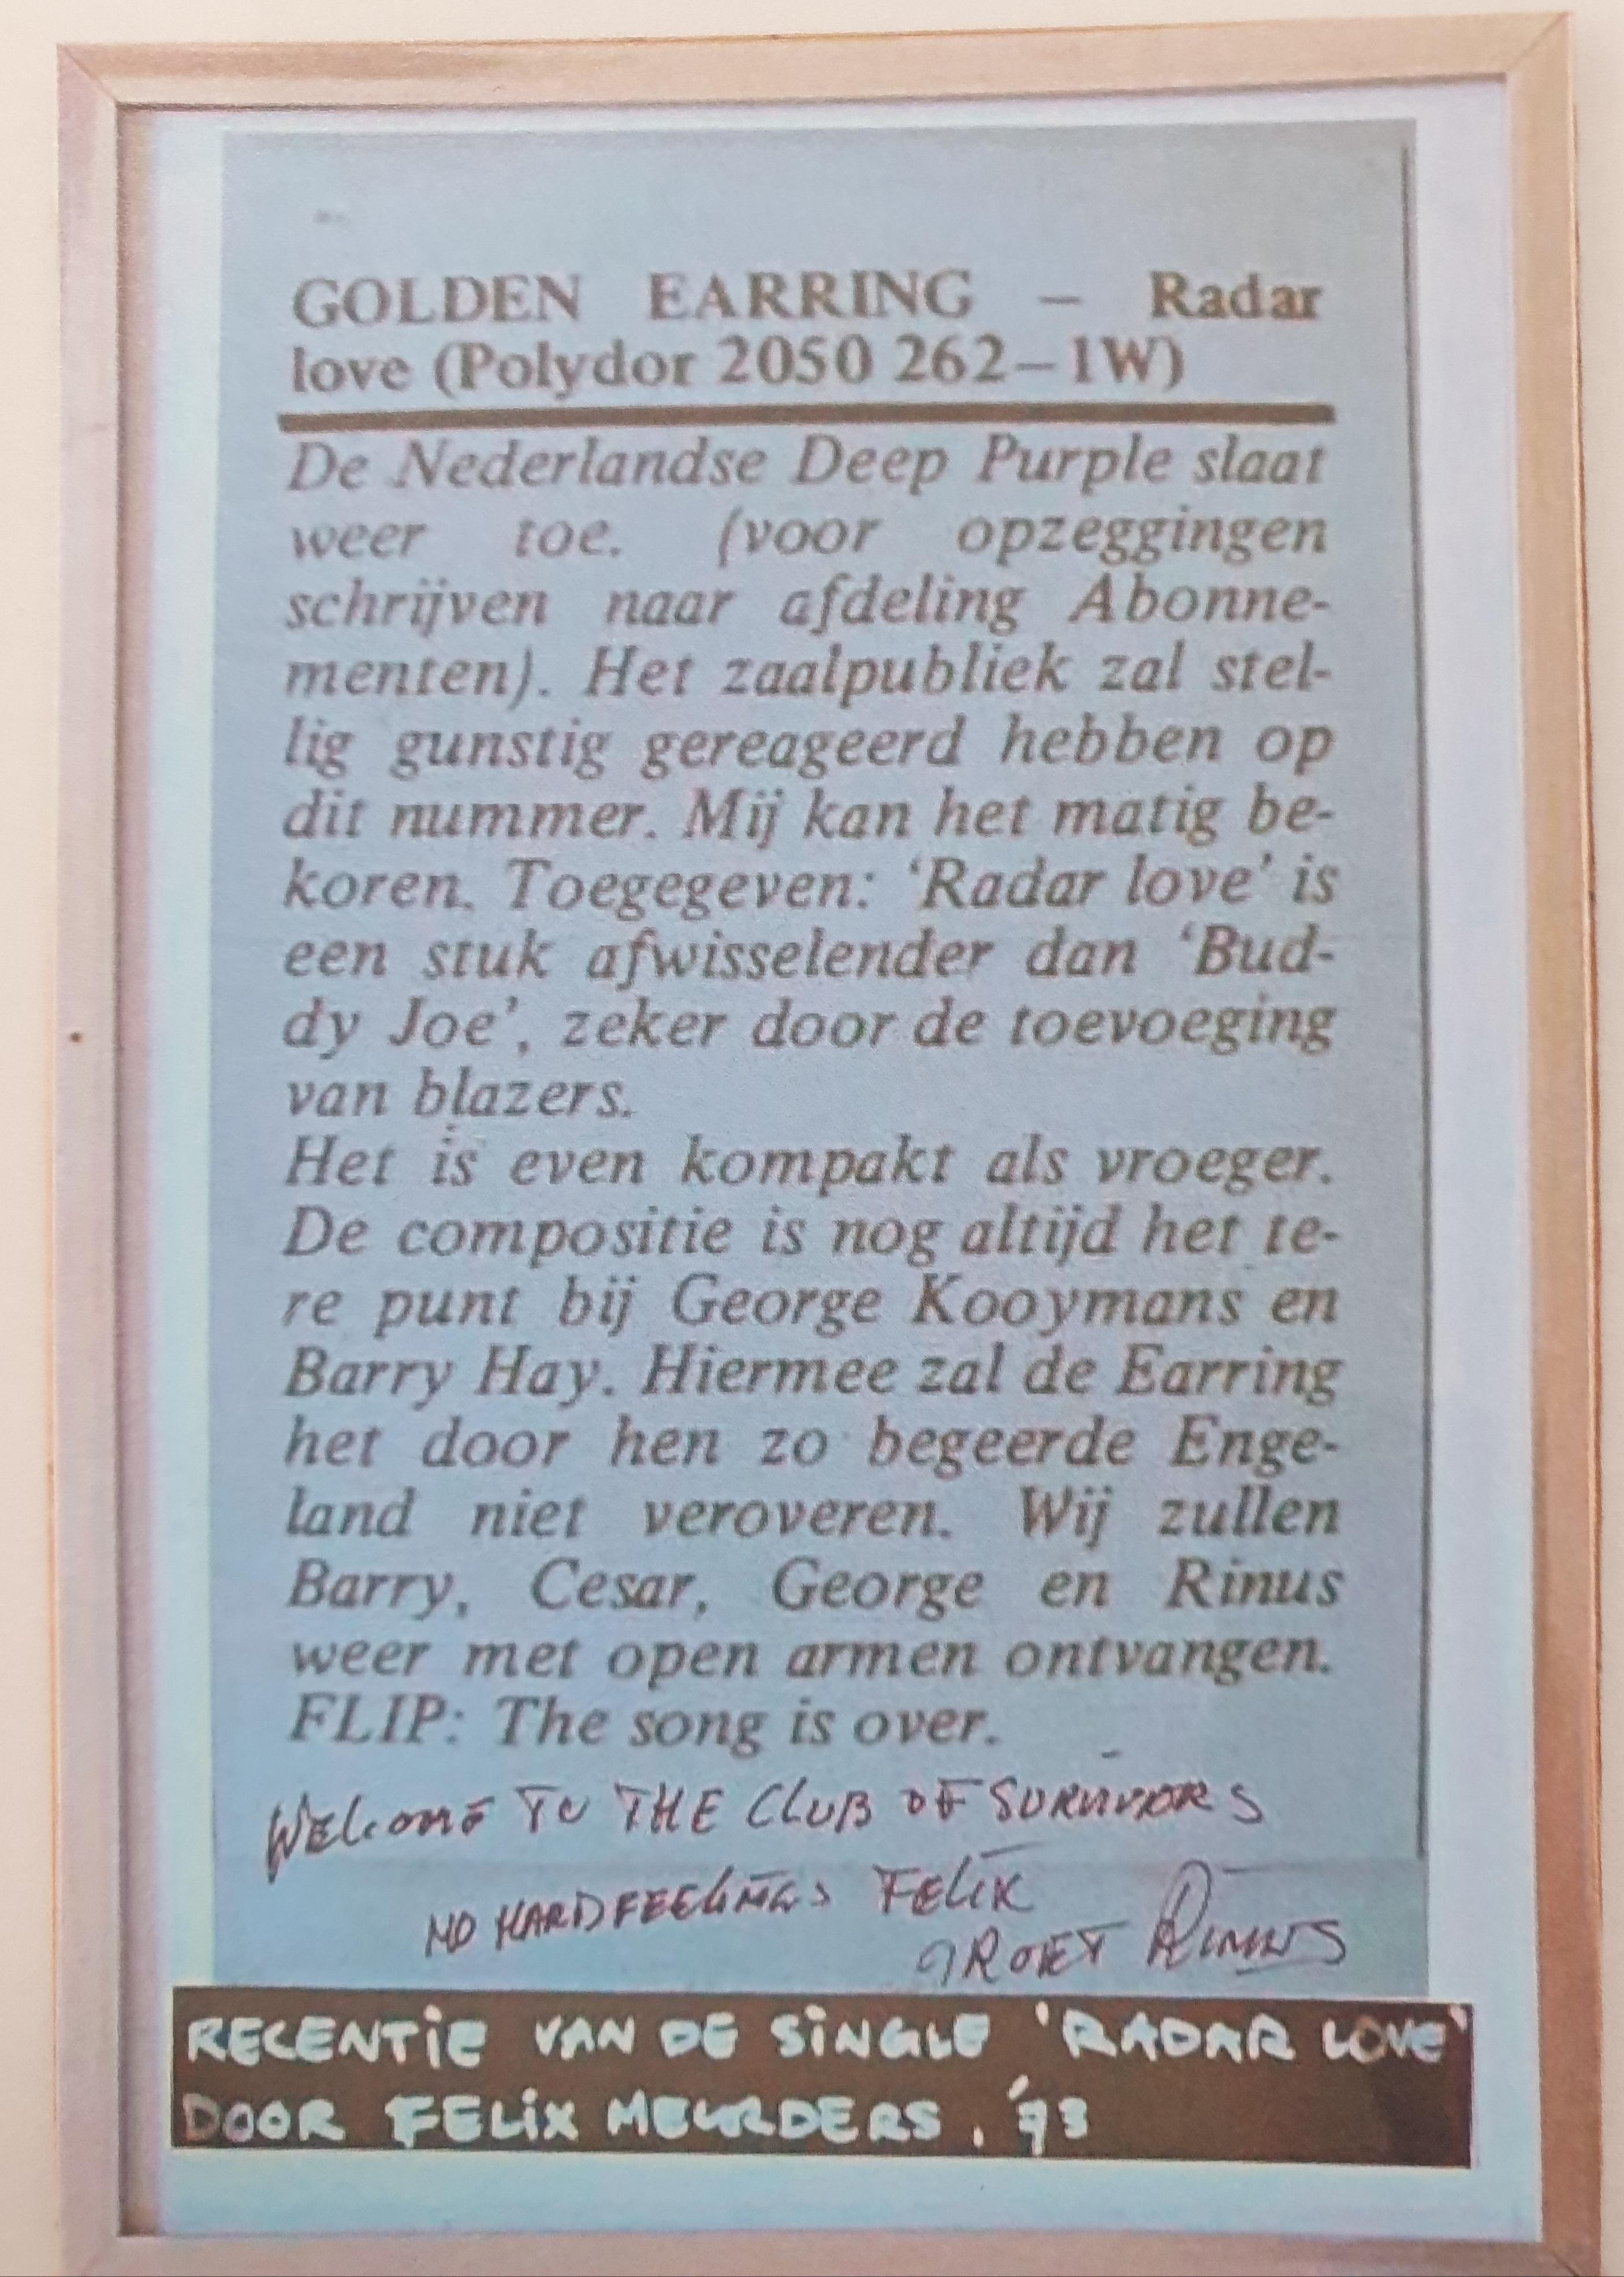 GOLDEN EARRING – Radar
love (Polydor 2050 262–1W)
De Nederlandse Deep Purple slaat
weer toe. (voor opzeggingen
schrijven naar afdeling Abonne-
menten). Het zaalpubliek zal stel-
lig gunstig gereageerd hebben op
dit nummer. Mij kan het matig be-
koren. Toegegeven: ‘Radar love’ is
een stuk afwisselender dan ‘Bud-
dy Joe’, zeker door de toevoeging
van blazers.
Het is even kompakt als vroeger.
De compositie is nog altijd het te-
re punt bij George Kooymans en
Barry Hay. Hiermee zal de Earring
het door hen zo begeerde Enge-
land niet veroveren. Wij zullen
Barry, Cesar, George en Rinus
weer met open armen ontvangen.
FLIP: The song is over.
WELCOME TO THE CLUB OF SURVIVORS
NO HARD FEELINGS FELIX
GROET RINUS
RECENTIE VAN DE SINGLE 'RADAR LOVE'
DOOR FELIX MEURDERS. '73